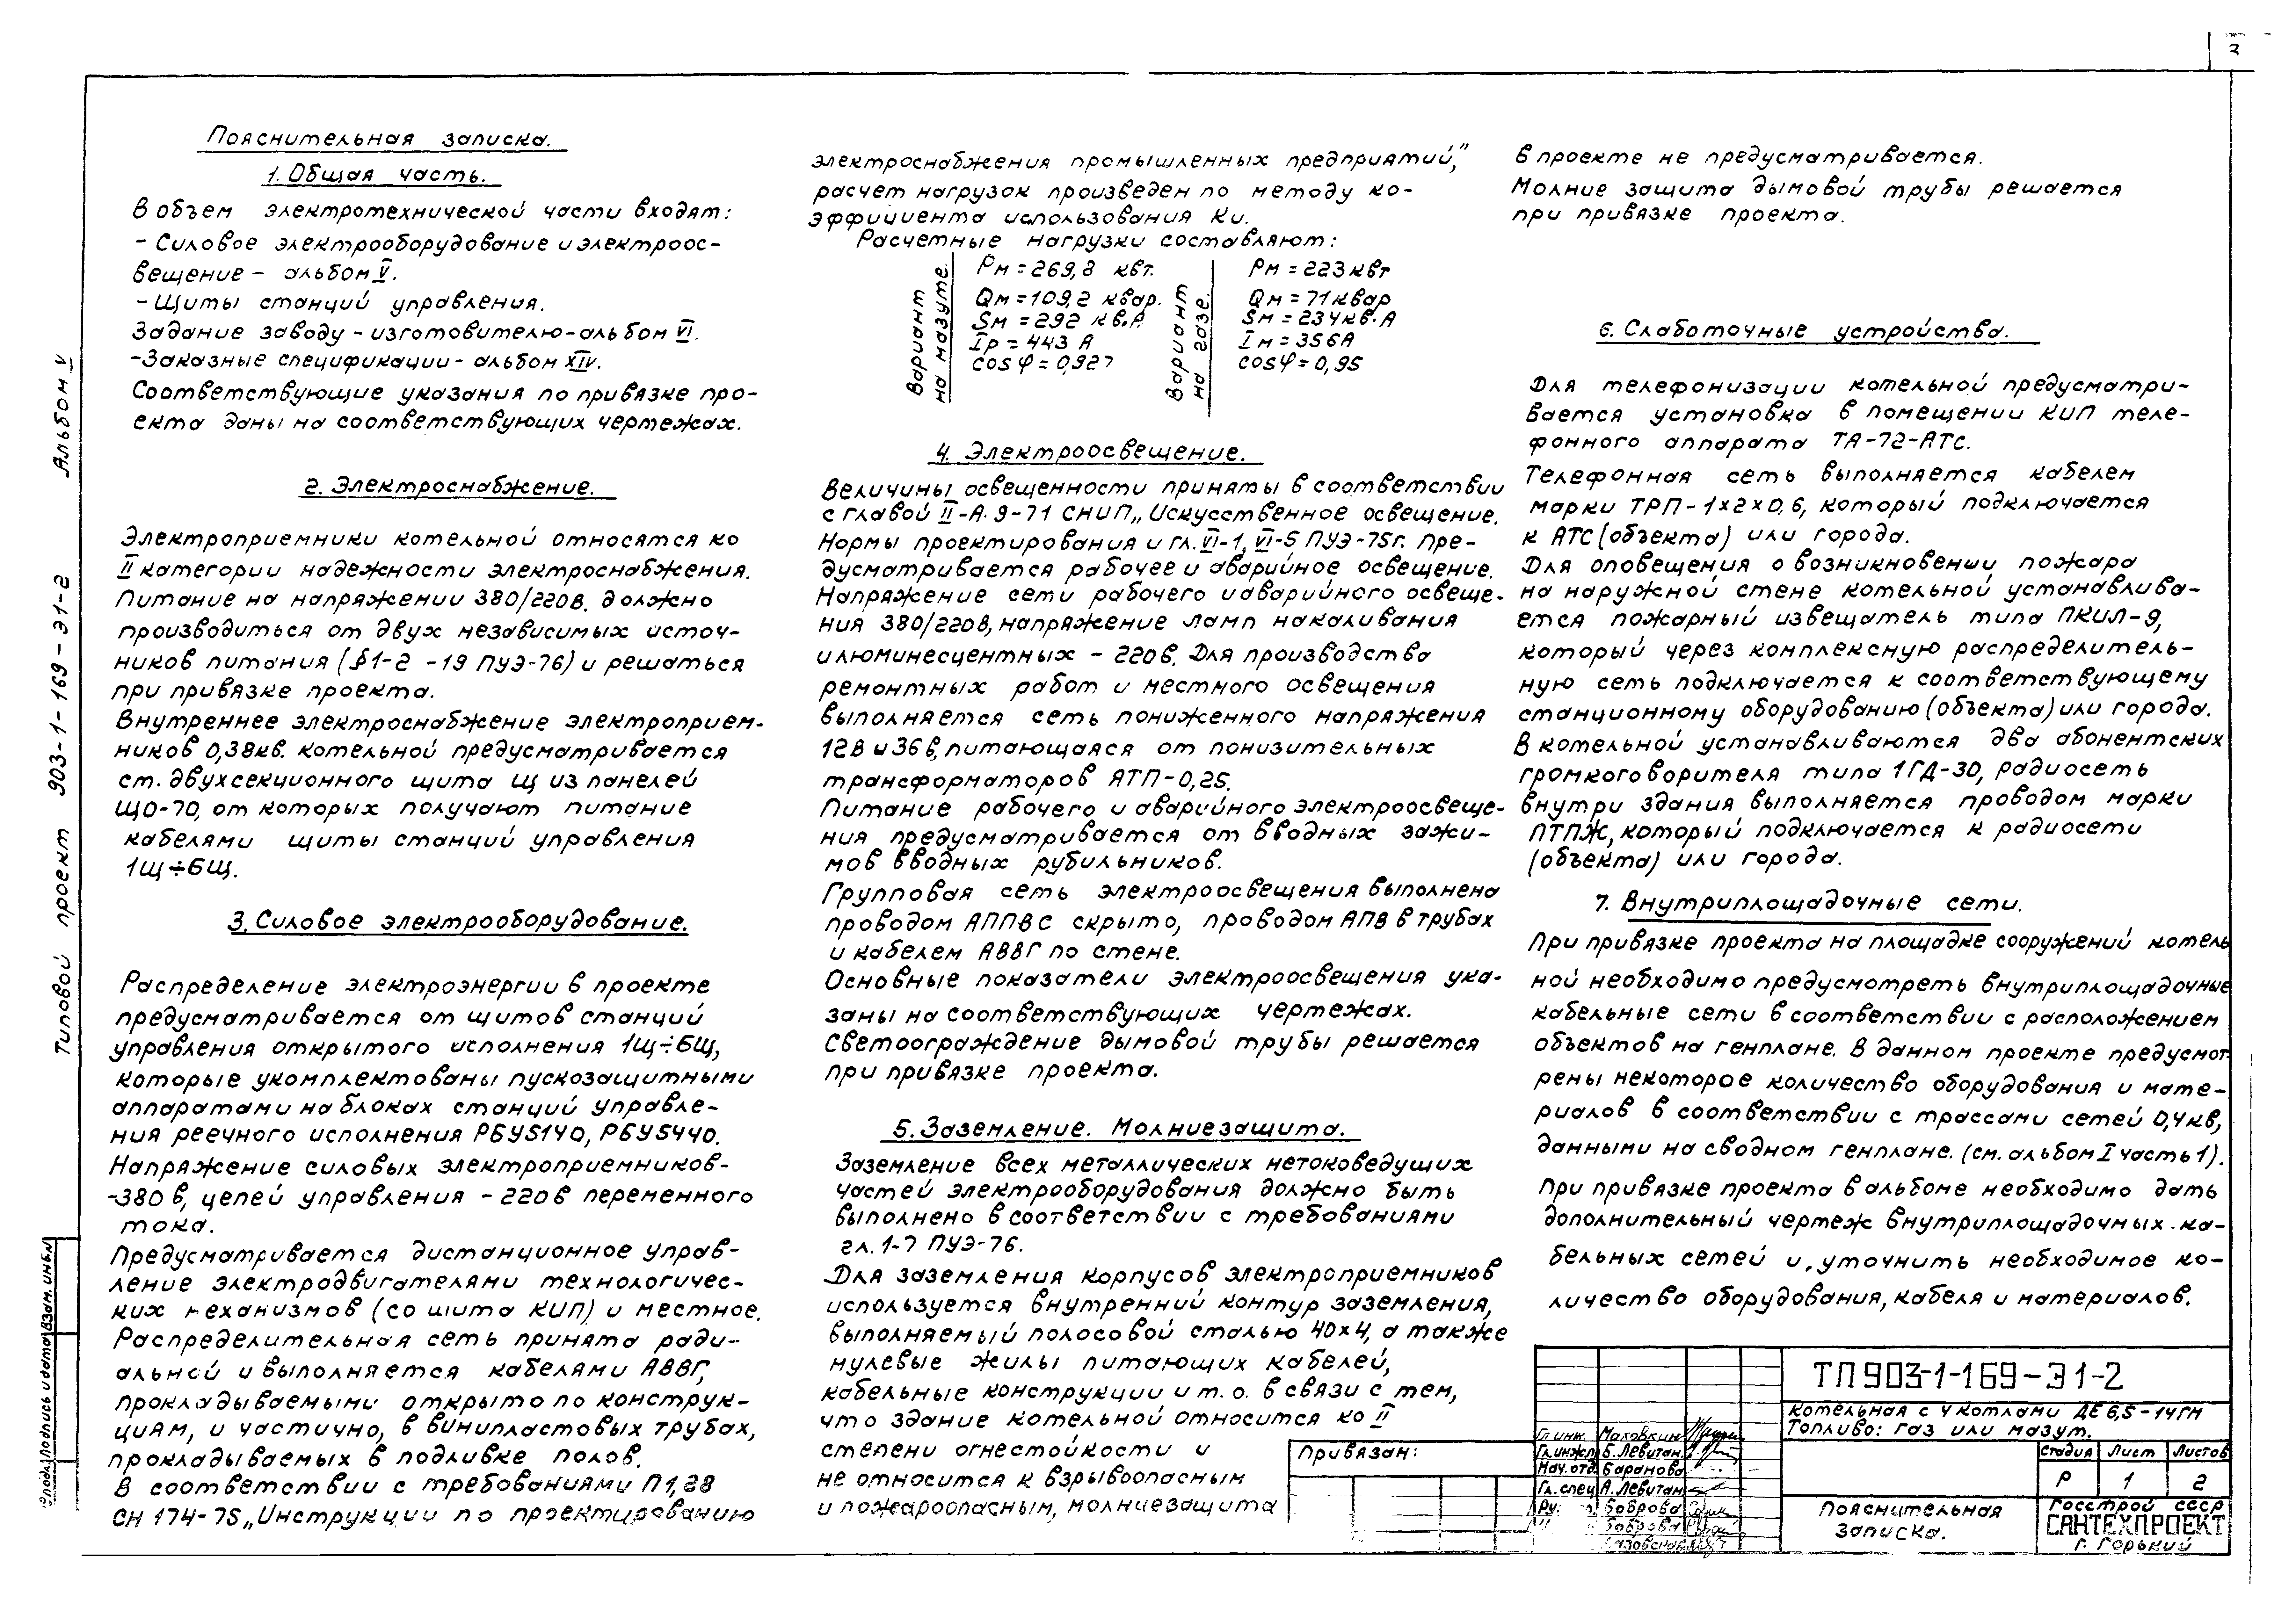 3
Пояснительная записка.
1. Общая часть.
В объем электротехнической части входят:
- Силовое электрооборудование и электроос-
вещение - альбом V.
- Щиты станций управления.
Задание заводу - изготовителю - альбом VI.
- Заказные спецификации - альбом XIV.
Соответствующие указания по привязке про-
екта даны на соответствующих чертежах.
2. Электроснабжение.
Электроприемники котельной относятся ко
II категории надежности электроснабжения.
Питание на напряжении 380/220в. должно
производиться от двух независимых источ-
ников питания (§1-2-19 ПУЭ-76) и решаться
при привязке проекта.
Внутреннее электроснабжение электроприем-
ников 0,38кв. котельной предусматривается
ст. двухсекционного щита Щ из панелей
ЩО-70, от которых получают питание
кабелями щиты станций управления
1щ÷6щ.
3. Силовое электрооборудование.
Распределение электроэнергии в проекте
предусматривается от щитов станций
управления открытого исполнения 1щ÷6щ,
которые укомплектованы пускозащитными
аппаратами на блоках станций управле-
ния реечного исполнения РБУ5140, РБУ5440.
Напряжение силовых электроприемников-
~380 в, цепей управления - 220в переменного
тока.
Предусматривается дистанционное управ-
ление электродвигателями технологичес-
ких механизмов (со щита КИП) и местное.
Распределительная сеть принята ради-
альной и выполняется кабелями АВВГ,
прокладываемыми открыто по конструк-
циям, и частично, в винипластовых трубах,
прокладываемых в подливке полов.
В соответствии с требованиями П1,28
СН 174-75 „Инструкции по проектированию
электроснабжения промышленных предприятий,"
расчет нагрузок произведен по методу ко-
эффициента использования Ки.
Расчетные нагрузки составляют:
Вариант на мазуте.
Рм = 269,8 квт.
Qм = 109,2 квар.
Sм = 292 кв.А
Iр = 443 А
cosφ = 0,927
Вариант на газе.
Рм = 223 квт
Qм = 71 квар
Sм = 234 кв.А
Iм = 356А
cosφ = 0,95
4. Электроосвещение.
Величины освещенности приняты в соответствии
с главой II-А.9-71 СНиП „Искусственное освещение.
Нормы проектирования и гл. VI-1, VI-5 ПУЭ-75г. Пре-
дусматривается рабочее и аварийное освещение.
Напряжение сети рабочего и аварийного освеще-
ния 380/220в, напряжение ламп накаливания
и люминесцентных - 220в. Для производства
ремонтных работ и местного освещения
выполняется сеть пониженного напряжения
12в и 36в, питающаяся от понизительных
трансформаторов ЯТП-0,25.
Питание рабочего и аварийного электроосвеще-
ния предусматривается от вводных зажи-
мов вводных рубильников.
Групповая сеть электроосвещения выполнена
проводом АППВС скрыто, проводом АПВ в трубах
и кабелем АВВГ по стене.
Основные показатели электроосвещения ука-
заны на соответствующих чертежах.
Светоограждение дымовой трубы решается
при привязке проекта.
5. Заземление. Молниезащита.
Заземление всех металлических нетоковедущих
частей электрооборудования должно быть
выполнено в соответствии с требованиями
гл. 1-7 ПУЭ-76.
Для заземления корпусов электроприемников
используется внутренний контур заземления,
выполняемый полосовой сталью 40х4, а также
нулевые жилы питающих кабелей,
кабельные конструкции и т. о. в связи с тем,
что здание котельной относится ко II
степени огнестойкости и
не относится к взрывоопасным
и пожароопасным, молниезащита
в проекте не предусматривается.
Молние защита дымовой трубы решается
при привязке проекта.
6. Слаботочные устройства.
Для телефонизации котельной предусматри-
вается установка в помещении КИП теле-
фонного аппарата ТА-72-АТС.
Телефонная сеть выполняется кабелем
марки ТРП-1х2х0,6, который подключается
к АТС (объекта) или города.
Для оповещения о возникновении пожара
на наружной стене котельной устанавлива-
ется пожарный извещатель типа ПКИЛ-9,
который через комплексную распределитель-
ную сеть подключается к соответствующему
станционному оборудованию (объекта) или города.
В котельной устанавливаются два абонентских
громкоговорителя типа 1ГД-30, радиосеть
внутри здания выполняется проводом марки
ПТПЖ, который подключается к радиосети
(объекта) или города.
7. Внутриплощадочные сети.
При привязке проекта на площадке сооружений котель
ной необходимо предусмотреть внутриплощадочные
кабельные сети в соответствии с расположением
объектов на генплане. В данном проекте предусмот-
рены некоторое количество оборудования и мате-
риалов в соответствии с трассами сетей 0,4кв,
данными на сводном генплане. (см. альбом I часть 1).
При привязке проекта в альбоме необходимо дать
дополнительный чертеж внутриплощадочных ка-
бельных сетей и, уточнить необходимое ко-
личество оборудования, кабеля и материалов.
Типовой проект 903-1-169-Э1-2 Альбом V
подл. Подпись и дата Взам. инв.N
Привязан:
Гл. инж. Маковкин
Гл. инж.п Б. Левитан
Нач. отд. Баранова
Гл. спец А. Левитан
Ру. Боброва
Боброва
ТП 903-1-169-Э1-2
Котельная с 4 котлами ДЕ 6,5-14ГМ
Топливо: газ или мазут.
Стадия Лист Листов
Р 1 2
Пояснительная
записка.
Госстрой СССР
САНТЕХПРОЕКТ
г. Горький